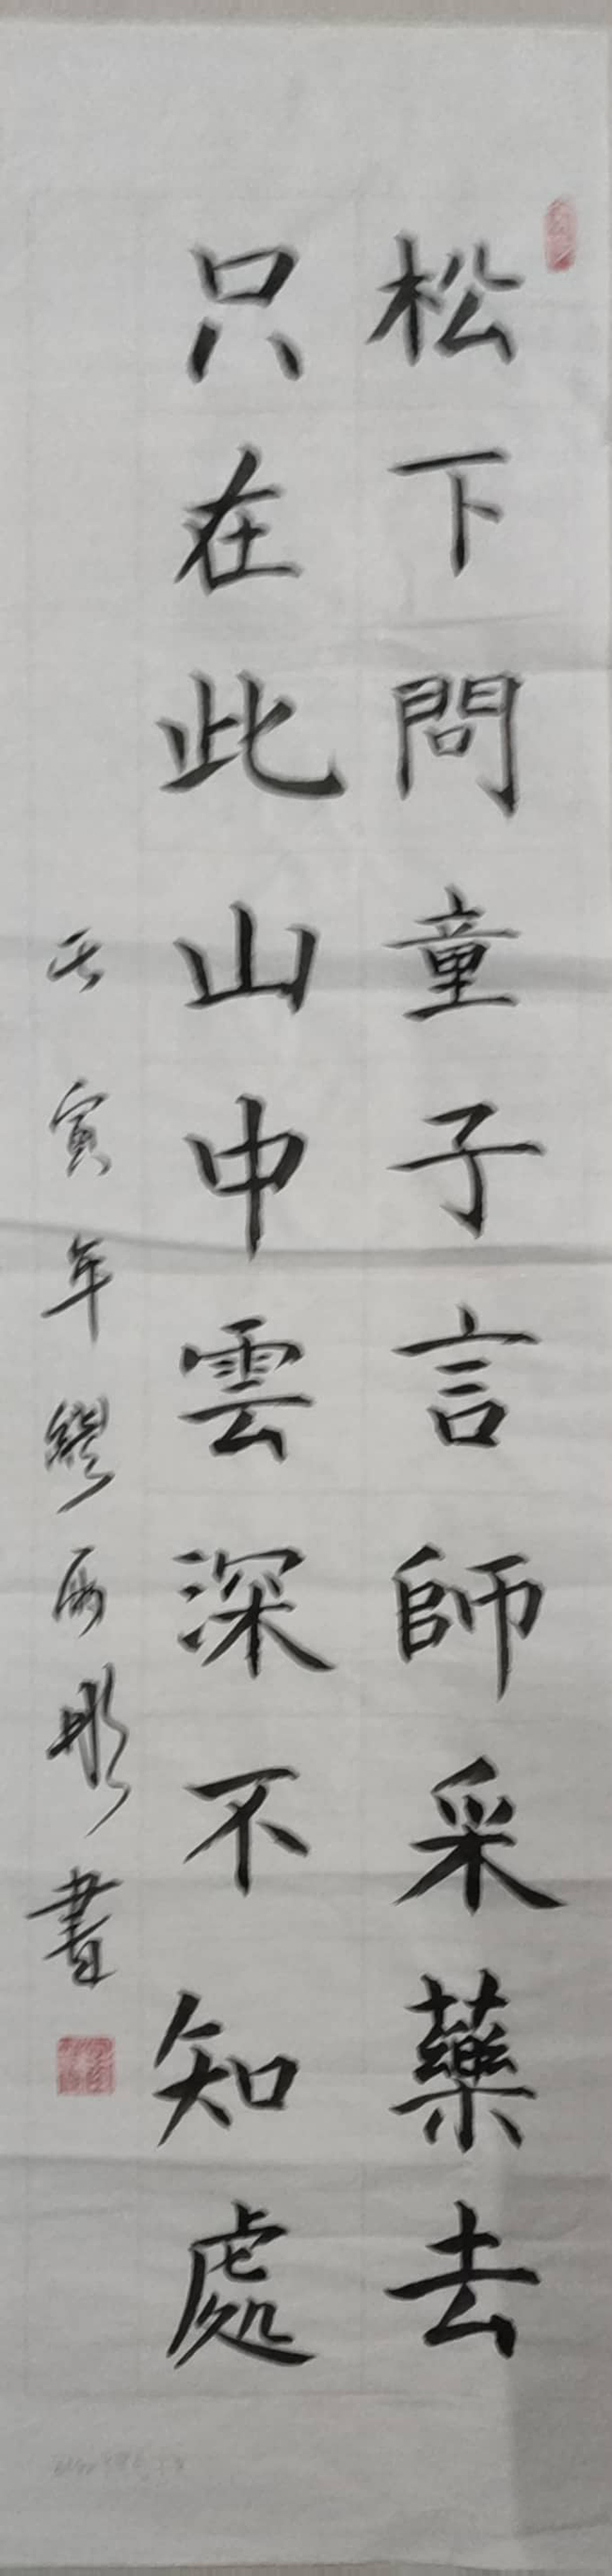 松下問童子言師采藥去
只在此山申雲深不知處
壬寅年繆雨彤書